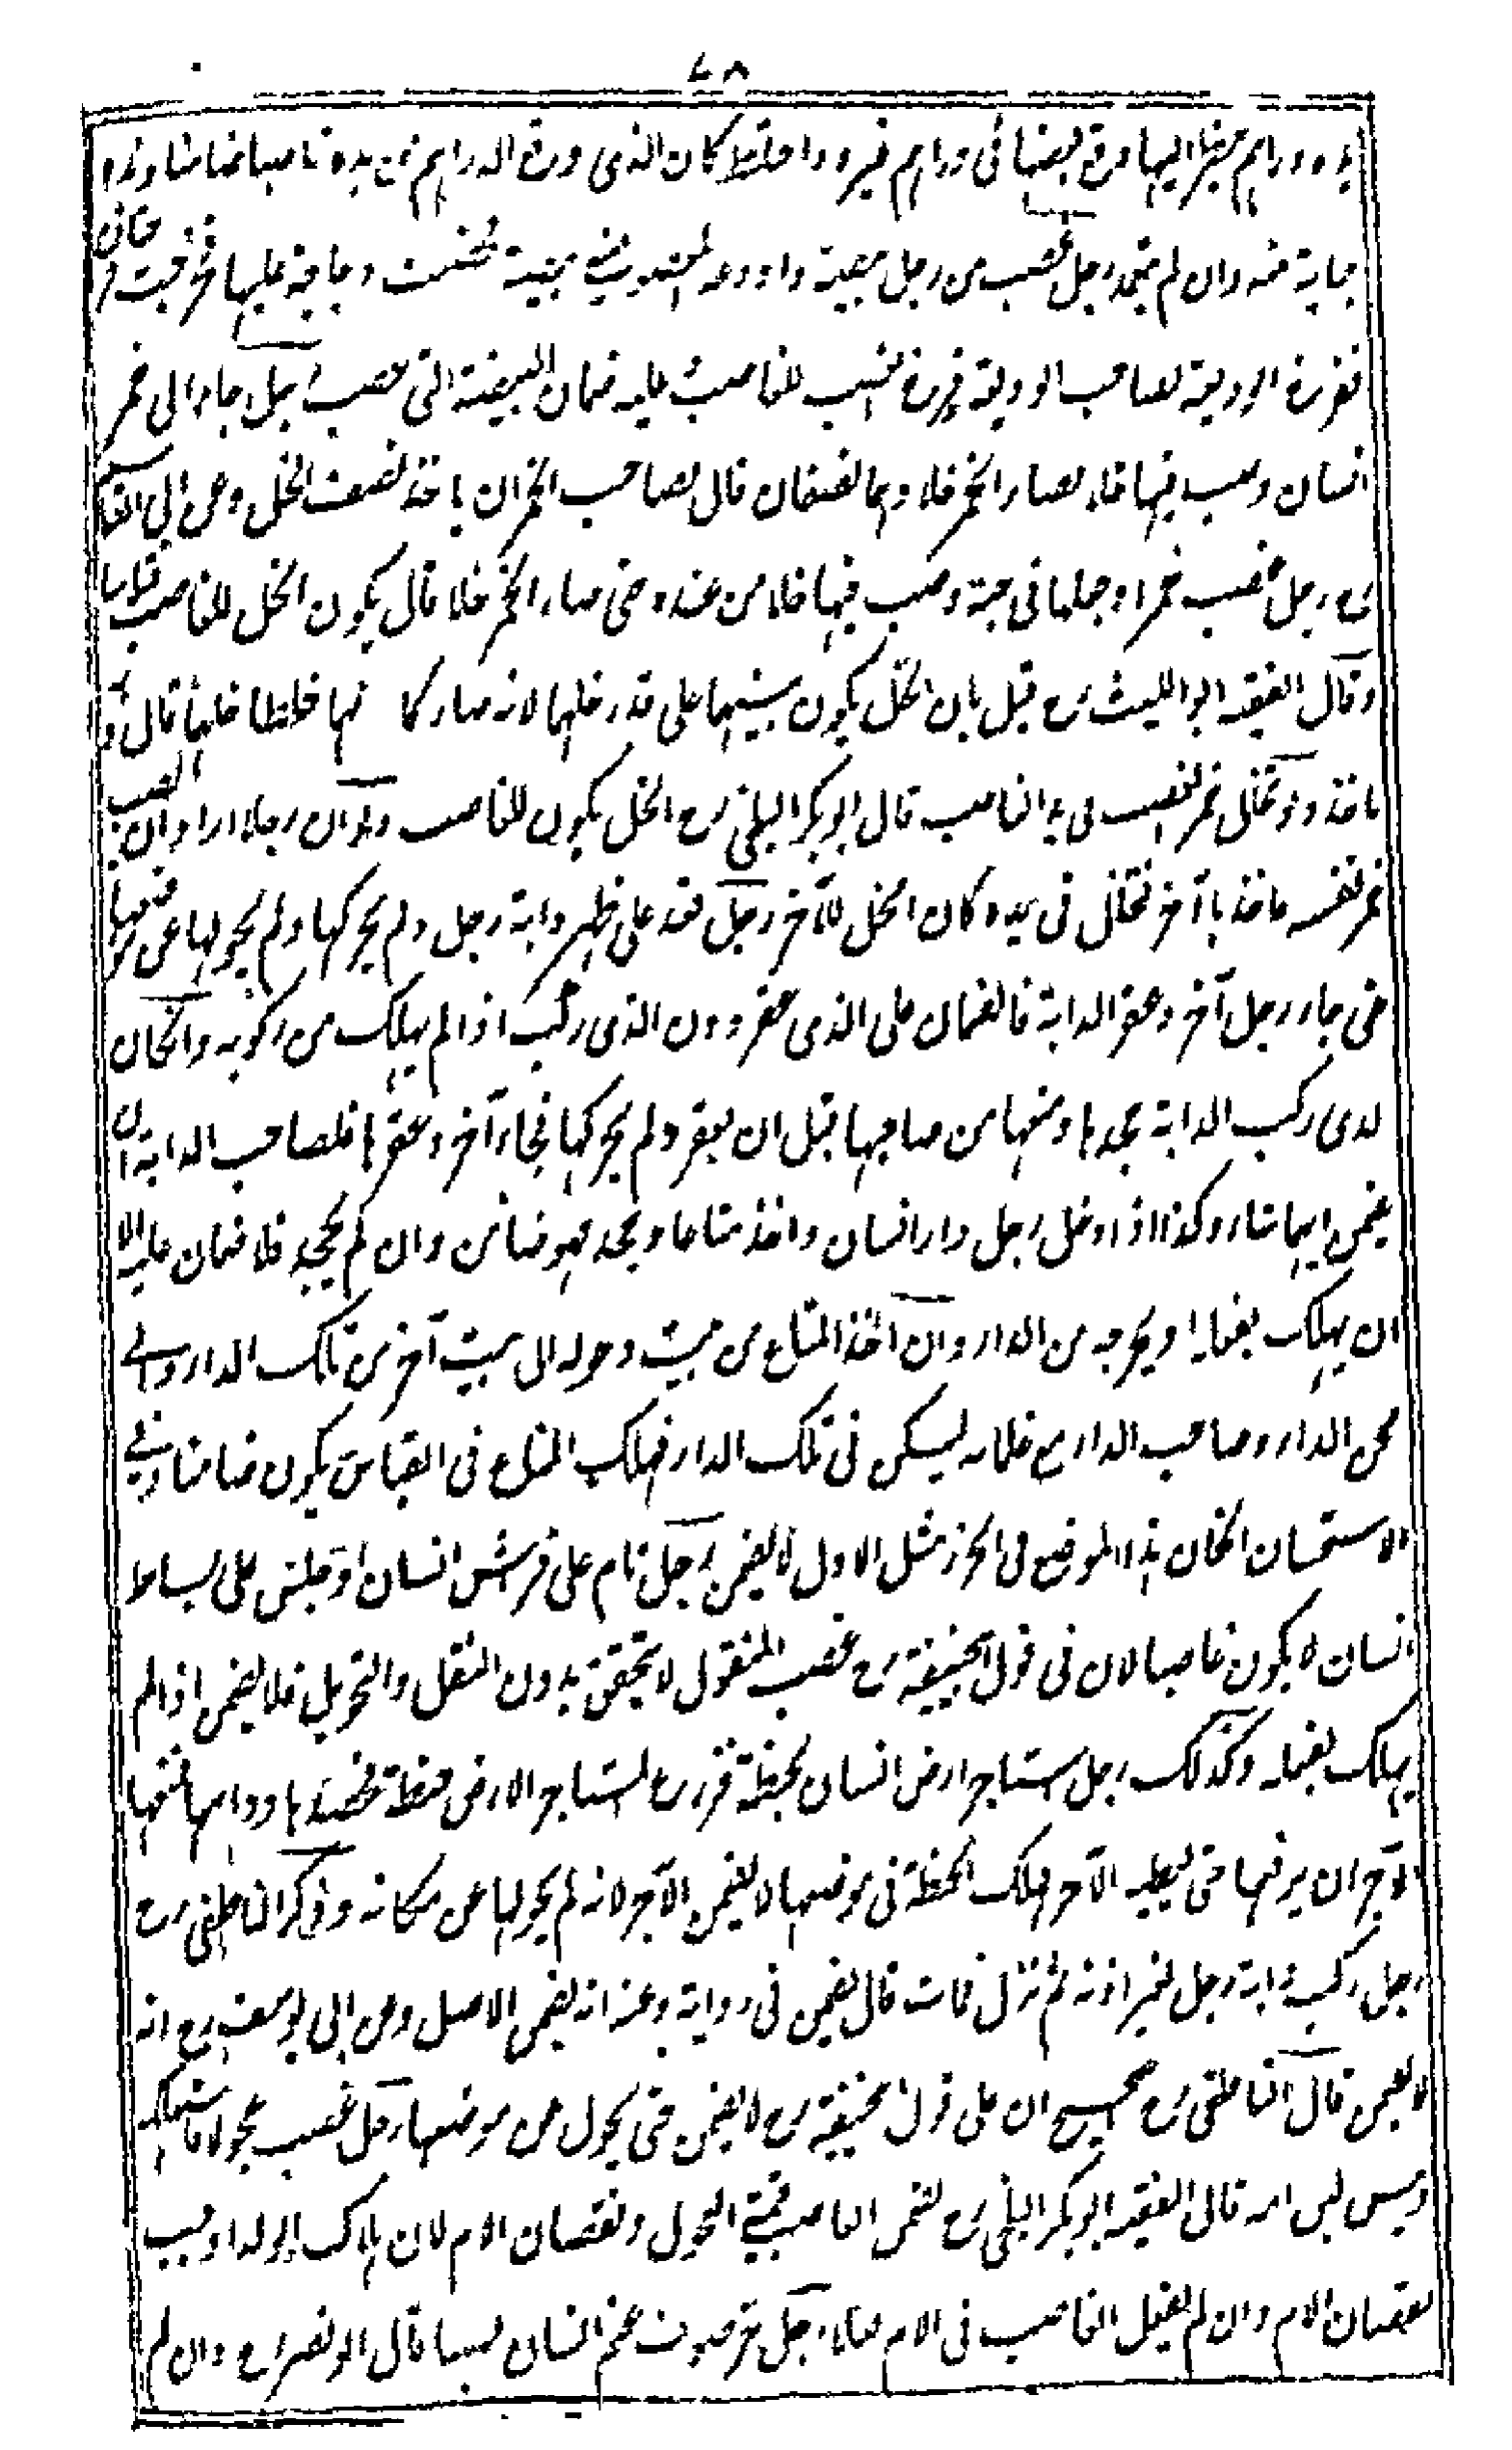 ٤٨
يده دراهم ينظر اليها وقع بعضها فى دراهم غيره واختلط كان الذى وقع الدراهم من يده غاصبا ضامنا وهذه
جناية منه وان لم يتعمد رجل غصب من رجل بيضة واودعه المغصوب منه بيضة فحضنت دجاجة عليها فخرجت فرختان
ففرخة الوديعة لصاحب الوديعة وفرخة الغصب للغاصب وعليه ضمان البيضة التى غصب رجل جاء الى خمر
انسان وصب فيها خلا فصار الخمر خلا وهما نصفان قال لصاحب الخمر ان ياخذ نصف الخل وعن ابى القاسم
رح رجل غصب خمرا وجعلها فى حبه وصب فيها خلا من عنده حتى صار الخمر خلا قال يكون الخل للغاصب قياسا
وقال الفقيه ابو الليث رح قيل بان الخل يكون بينهما على قدر خلهما لانه صار كانهما خلطا خلهما قال
ياخذ ولو تخلل خمر الغصب فى يد الغاصب قال ابو بكر البلخى رح الخل يكون للغاصب ولو ان رجلا اراد ان يصب
خمر نفسه فاخذها آخر فتخلل فى يده كان الخل للآخر رجل قعد على ظهر دابة رجل ولم يحركها ولم يحولها عن موضعها
حتى جاء رجل آخر وعقر الدابة فالضمان على الذى عقر دون الذى ركب اذا لم يهلك من ركوبه وان كان
الذى ركب الدابة جحدها ومنعها من صاحبها قبل ان يعقر ولم يحركها فجاء آخر وعقرها فلصاحب الدابة ان
يضمن ايهما شاء وكذا اذا دخل رجل دار انسان واخذ متاعا وجحد فهو ضامن وان لم يجحد فلا ضمان عليه الا
ان يهلك بفعله او يخرجه من الدار وان اخذ المتاع من بيت وحوله الى بيت آخر من تلك الدار و الى
صحن الدار وصاحب الدار مع غلمانه يسكن فى تلك الدار فهلك المتاع فى القياس يكون ضامنا وفى
الاستحسان ان كان هذا الموضع فى الحرز مثل الاول لا يضمن رجل نام على فراش انسان او جلس على بساط
انسان لا يكون غاصبا لان فى قول ابى حنيفة رح غصب المنقول لا يتحقق بدون النقل والتحويل فلا يضمن اذا لم
يهلك بفعله وكذلك رجل استاجر ارض انسان بحنطة فزرع المستاجر الارض حنطة فحصدها وداسها فمنعها
الآجر ان يرفعها حتى يعطيه الآجر فهلك الحنطة فى موضعها لا يضمن الآجر لانه لم يحولها عن مكانه وذكر الناطفى رح
رجل ركب دابة رجل بغير اذنه ثم نزل فماتت قال يضمن فى رواية وعنه انه يضمن الاصل وعن ابى يوسف رح انه
لا يضمن قال الناطفى رح الصحيح ان على قول ابى حنيفة رح لا يضمن حتى يحول عن موضعها رجل غصب عجولا فاستهلكه
ويبس لبن امه قال الفقيه ابو بكر البلخى رح يضمن الغاصب قيمة العجول ونقصان الام لان هلاك الولد اوجب
نقصان الام وان لم يفعل الغاصب فى الام فعلا رجل جز صوف غنم انسان غصبا قال ابو نصر رح وان لم